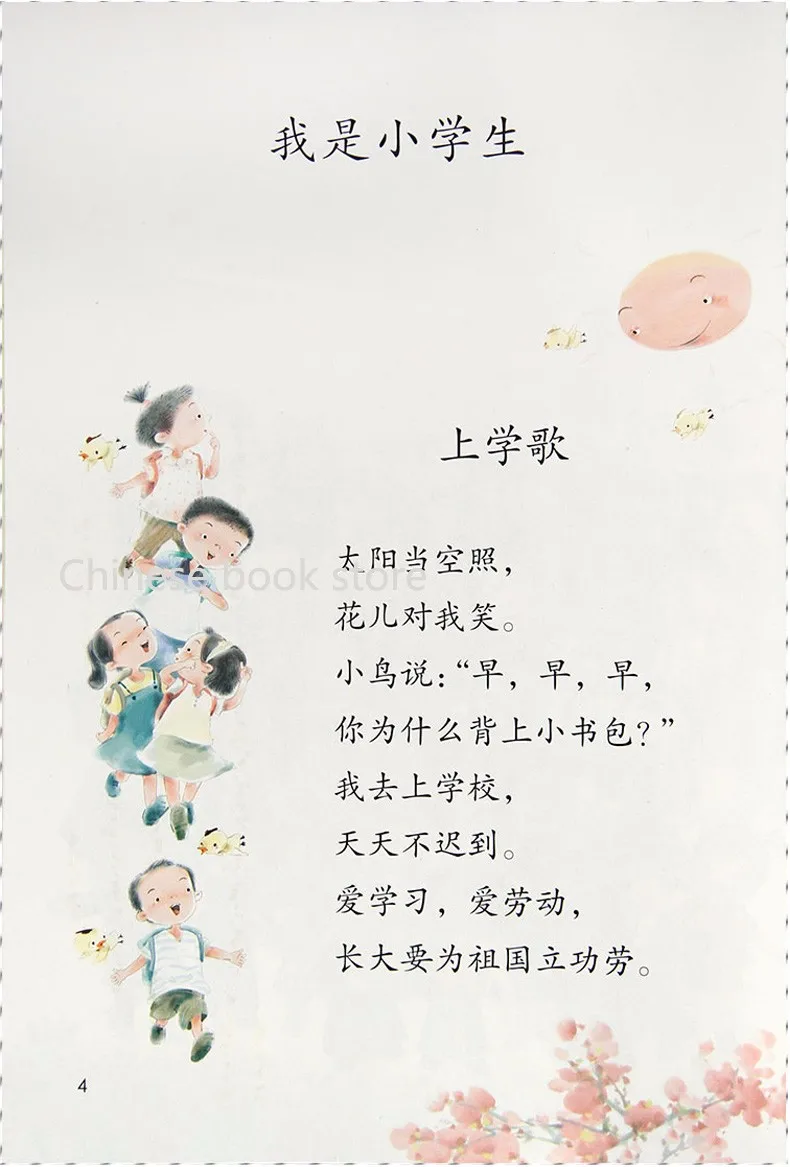 我是小学生
上学歌
太阳当空照，
花儿对我笑。
小鸟说：“早，早，早，
你为什么背上小书包？”
我去上学校，
天天不迟到。
爱学习，爱劳动，
长大要为祖国立功劳。
4
Chinese book store